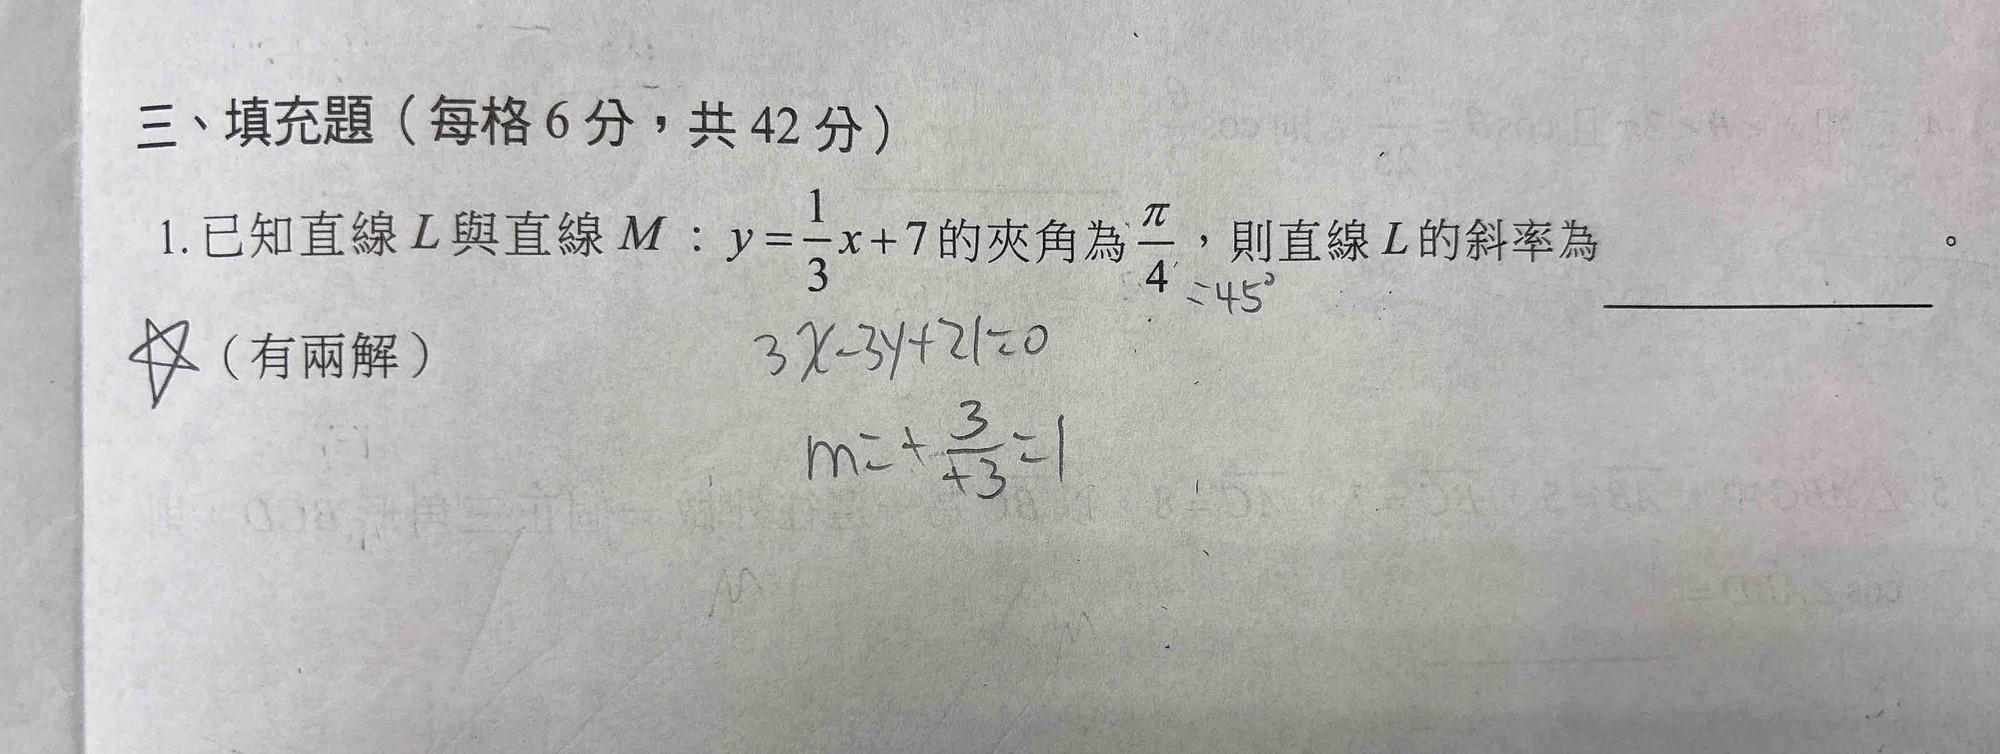 三、填充題（每格6分，共42分）
1. 已知直線L與直線M：y=1/3x+7的夾角為π/4，則直線L的斜率為＿＿＿＿。
=45°
（有兩解）
3x-3y+21=0
m=+3/+3=1